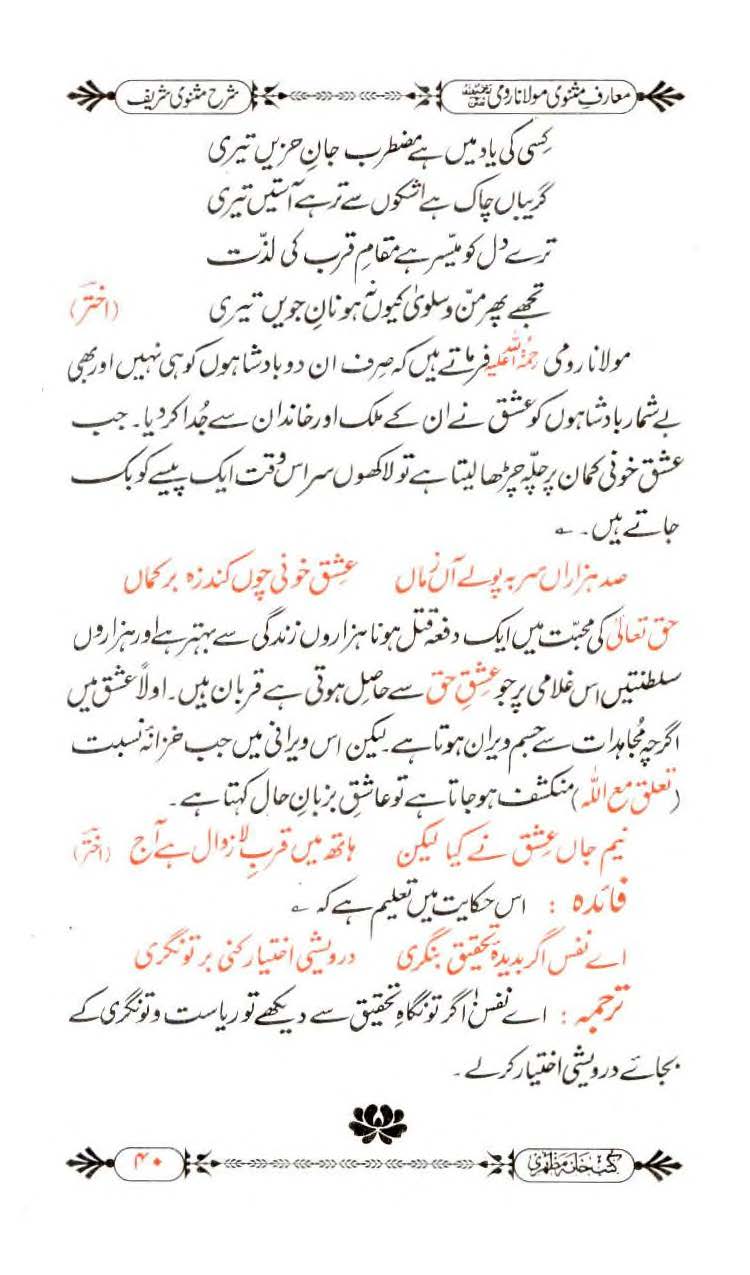 معارفِ مثنوی مولانا رومی رحمۃ اللہ علیہ
شرح مثنوی شریف
کسی کی یاد میں ہے مضطرب جانِ حزیں تیری
گریباں چاک ہے اشکوں سے تر ہے آستیں تیری
ترے دل کو میسّر ہے مقامِ قرب کی لذّت
تجھے پھر منّ و سلویٰ کیوں نہ ہو نانِ جویں تیری (اختؔر)
مولانا رومی رحمۃ اللہ علیہ فرماتے ہیں کہ صِرف ان دو بادشاہوں کو ہی نہیں اور بھی
بے شمار بادشاہوں کو عشق نے ان کے ملک اور خاندان سے جُدا کر دیا۔ جب
عشق خونی کمان پر چلّہ چڑھا لیتا ہے تو لاکھوں سر اس وقت ایک پیسے کو بک
جاتے ہیں۔ ؎
صد ہزاراں سر بہ پولے آں زماں عشق خونی چوں کند زہ بر کماں
حق تعالیٰ کی محبّت میں ایک دفعہ قتل ہونا ہزاروں زندگی سے بہتر ہے اور ہزاروں
سلطنتیں اس غلامی پر جو عشقِ حق سے حاصل ہوتی ہے قربان ہیں۔ اولاً عشق میں
اگرچہ مُجاہدات سے جسم ویران ہوتا ہے۔ لیکن اس ویرانی میں جب خزانۂ نسبت
(تعلق مع اللہ) منکشف ہو جاتا ہے تو عاشق بزبانِ حال کہتا ہے۔
نیم جاں عشق نے کیا لیکن ہاتھ میں قربِ لازوال ہے آج (اختؔر)
فائدہ : اس حکایت میں تعلیم ہے کہ ؎
اے نفس اگر بدیدۂ تحقیق بنگری درویشی اختیار کنی بر تونگری
ترجمہ : اے نفس! اگر تو نگاہِ تحقیق سے دیکھے تو ریاست و تونگری کے
بجائے درویشی اختیار کرلے۔
کتب خانہ مظہری
۴۰